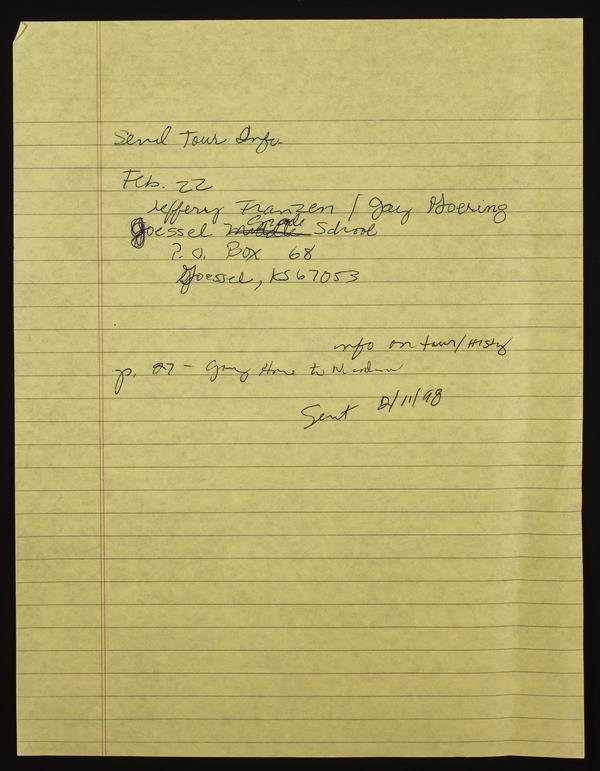 Send Tour Info.
Feb. 22
Jeffery Franzen / Gay Goering
Goessel Grade School
P.O. Box 68
Goessel, KS 67053
info on tour/History
p. 27 - Going Home to Nicodemus
Sent 2/11/98